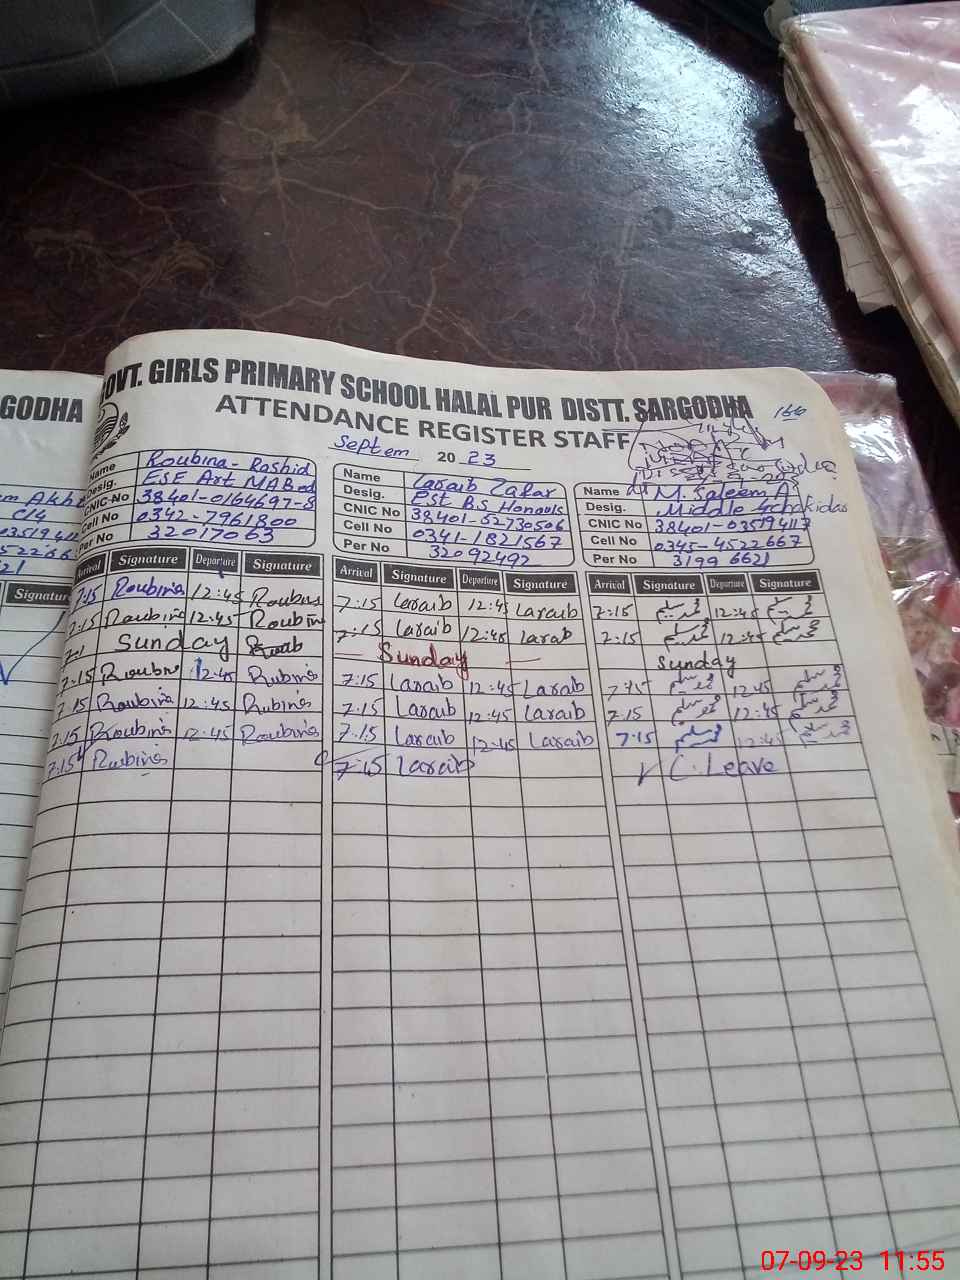 GODHA
OVT. GIRLS PRIMARY SCHOOL HALAL PUR DISTT. SARGODHA
ATTENDANCE REGISTER STAFF
166
Septem 20 23
Name Roubina-Rashid
Desig. ESE Art MABed
CNIC No 38401-0164697-8
Cell No 0342-7961800
Per No 32017063
Name Laraib Zafar
Desig. PST B.S Honours
CNIC No 38401-52730506
Cell No 0341-1821567
Per No 32092492
Name M. Saleem A
Desig. Middle
CNIC No 38401-03519411
Cell No 0345-4522667
Per No 3199 6621
Arrival Signature Departure Signature Arrival Signature Departure Signature Arrival Signature Departure Signature
7:15 Roubina 12:45 7:15 Laraib 12:45 Laraib 7:15 12:45
7:15 Roubina 12:45 Roubin 7:15 Laraib 12:45 Laraib 7:15 12:45
Sunday Sunday Sunday
7:15 Roubina 12:45 Rubina 7:15 Laraib 12:45 Laraib 7:15 12:45
7:15 Roubina 12:45 Rubina 7:15 Laraib 12:45 Laraib 7:15 12:45
7:15 Roubina 12:45 Roubina 7:15 Laraib 12:45 Laraib 7:15 12:45
7:15 Rubina 7:15 Laraib C. Leave
07-09-23 11:55